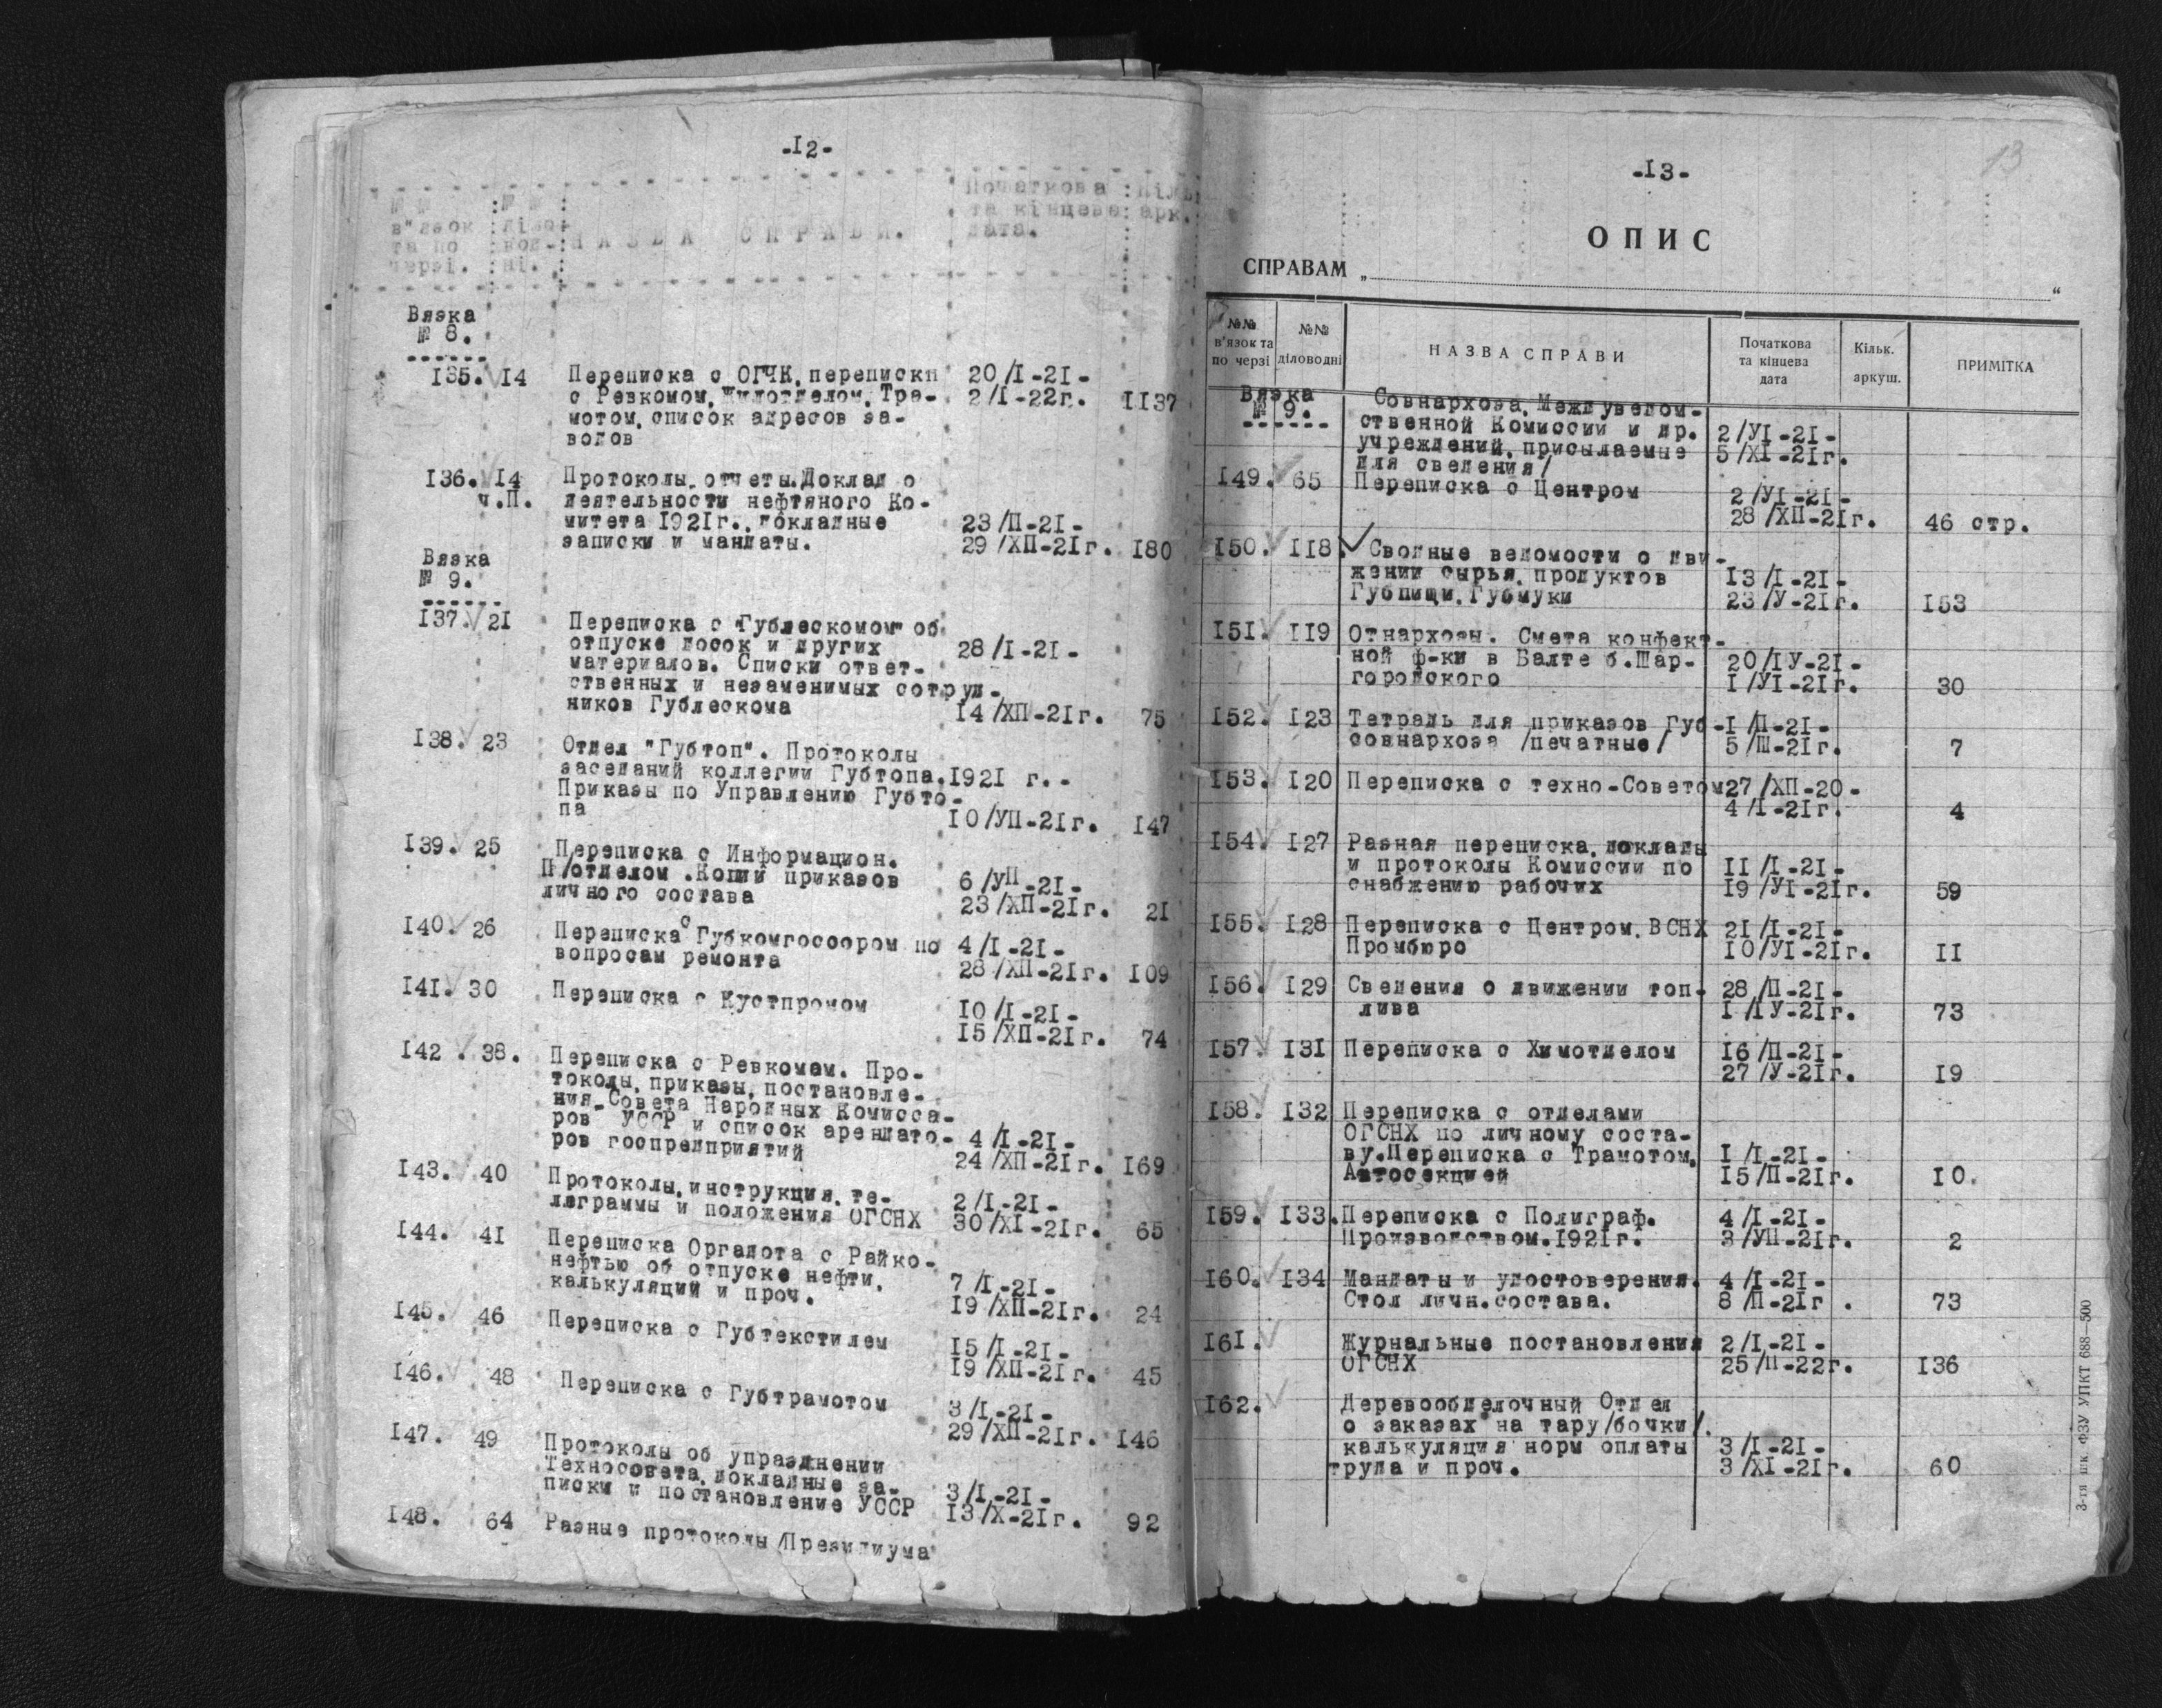 -I2-
№ № :№ № : Початкова :Кіль
в"язок :діло- та кінцева: арк.
та по :вод- НАЗВА СПРАВИ. дата.
черзі. :ні. :
Вязка
№ 8.
I35. I4 Переписка с ОГЧК, переписки 20/I-2I-
с Ревкомом, Жилотделом, Тра- 2/I-22г. II37
мотом, список адресов за-
водов
I36. I4 Протоколы, отчеты. Доклад о
ч.П. деятельности нефтяного Ко-
митета I92Iг., докладные 23/П-2I-
записки и мандаты. 29/ХП-2Iг. I80
Вязка
№ 9.
I37. 2I Переписка с "Гублескомом" об
отпуске досок и других 28/I-2I-
материалов. Списки ответ-
ственных и незаменимых сотруд-
ников Гублескома I4/ХП-2Iг. 75
I38. 23 Отдел "Губтоп". Протоколы
заседаний коллегии Губтопа. I92I г.-
Приказы по Управлению Губто-
па I0/УП-2Iг. I47
I39. 25 Переписка с Информацион.
П/отделом. Копии приказов 6/УП-2I-
личного состава 23/ХП-2Iг. 2I
I40. 26 Переписка с Губкомгоссоором по 4/I-2I-
вопросам ремонта 28/ХП-2Iг. I09
I4I. 30 Переписка с Кустпромом I0/I-2I-
I5/ХП-2Iг. 74
I42. 38. Переписка с Ревкомам. Про-
токолы, приказы, постановле-
ния Совета Народных Комисса-
ров УССР и список арендато- 4/I-2I-
ров госпредприятий 24/ХП-2Iг. I69
I43. 40 Протоколы, инструкция, те- 2/I-2I-
леграммы и положения ОГСНХ 30/XI-2Iг. 65
I44. 4I Переписка Оргалота с Райко-
нефтью об отпуске нефти, 7/I-2I-
калькуляций и проч. I9/ХП-2Iг. 24
I45. 46 Переписка с Губтекстилем I5/I-2I-
I9/ХП-2Iг. 45
I46. 48 Переписка с Губтрамотом 3/I-2I-
29/ХП-2Iг. I46
I47. 49 Протоколы об упразднении
Техносовета, докладные за- 3/I-2I-
писки и постановление УССР I3/Х-2Iг. 92
I48. 64 Разные протоколы /Президиума
-I3-
13
ОПИС
СПРАВАМ „ “
№№ в'язок та по черзі №№ діловодні НАЗВА СПРАВИ Початкова та кінцева дата Кільк. аркуш. ПРИМІТКА
Вязка Совнархоза, Междуведом-
№ 9. ственной Комиссии и др. 2/УI-2I-
учреждений, присылаемые 5/XI-2Iг.
для сведения/
I49. 65 Переписка с Центром 2/УI-2I-
28/ХП-2Iг. 46 стр.
I50. II8. Сводные ведомости о дви-
жении сырья, продуктов I3/I-2I-
Губпищи, Губмуки 23/У-2Iг. I53
I5I. II9 Отнархозы. Смета конфект-
ной ф-ки в Балте б.Шар- 20/IУ-2I-
городского I/УI-2Iг. 30
I52. I23 Тетрадь для приказов Губ- I/П-2I-
совнархоза /печатные/ 5/Ш-2Iг. 7
I53. I20 Переписка с техно-Советом 27/ХП-20-
4/I-2Iг. 4
I54 I27 Разная переписка, доклады
и протоколы Комиссии по II/I-2I-
снабжению рабочих I9/УI-2Iг. 59
I55. I28 Переписка с Центром, ВСНХ 2I/I-2I-
Промбюро I0/УI-2Iг. II
I56. I29 Сведения о движении топ- 28/П-2I-
лива I/IУ-2Iг. 73
I57. I3I Переписка с Химотделом I6/П-2I-
27/У-2Iг. I9
I58. I32 Переписка с отделами
ОГСНХ по личному соста-
ву. Переписка с Трамотом, I/I-2I-
Автосекцией I5/П-2Iг. I0.
I59. I33. Переписка с Полиграф. 4/I-2I-
Производством. I92Iг. 3/УП-2Iг. 2
I60. I34 Мандаты и удостоверения. 4/I-2I-
Стол личн.состава. 8/П-2Iг. 73
I6I. Журнальные постановления 2/I-2I-
ОГСНХ 25/П-22г. I36
I62. Деревообделочный Отдел
о заказах на тару/бочки/.
калькуляция норм оплаты 3/I-2I-
труда и проч. 3/XI-2Iг. 60
3-тя шк ФЗУ УПКТ 688—500